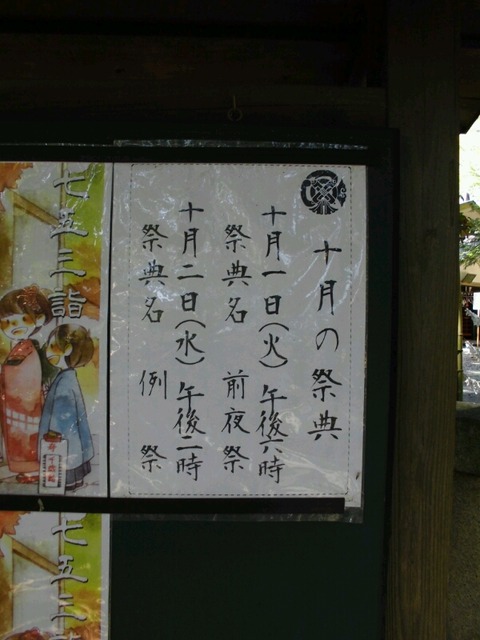 十月の祭典
十月一日(火) 午後六時
祭典名 前夜祭
十月二日(水) 午後二時
祭典名 例祭
七五三詣
七五三詣